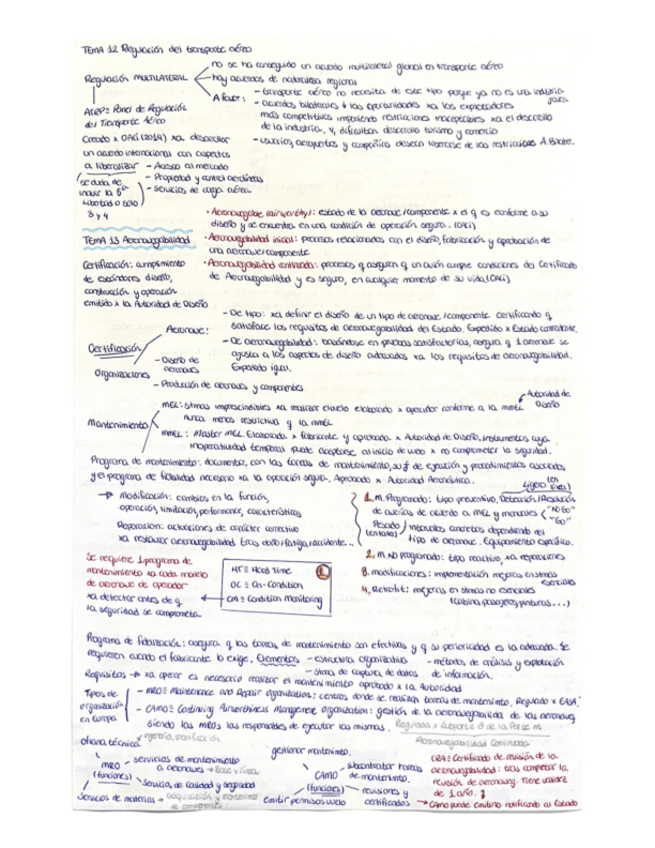 TEMA 12 Regulación del transporte aéreo
no se ha conseguido un acuerdo multilateral global en transporte aéreo
Regulación MULTILATERAL
hay acuerdos de naturaleza regional
A favor:
- transporte aéreo no necesita de este tipo porque ya no es una industria
ATRP ≡ Panel de Regulación
del Transporte Aéreo
- acuerdos bilaterales ↓ las oportunidades xa los explotadores
más competitivos imponiendo restricciones inaceptables xa el desarrollo
de la industria. Y, dificultan desarrollo turismo y comercio
Creado x OACI (2014) xa desarrollar
un acuerdo internacional con aspectos
a liberalizar
- usuarios, aeropuertos y compañías desean liberarse de las restricciones A. Bilater.
- Acceso al mercado
- Propiedad y control aerolíneas
- Servicios de carga aérea
se duda de
incluir la 6ª
libertad o solo
3 y 4
· Aeronavegable (airworthy): estado de la aeronave/componente x el q es conforme a su
diseño y se encuentra en una condición de operación segura. (OACI)
TEMA 13 Aeronavegabilidad
· Aeronavegabilidad inicial: procesos relacionados con el diseño, fabricación y aprobación de
una aeronave/componente
· Aeronavegabilidad continuada: procesos q aseguran q un avión cumple condiciones del Certificado
de Aeronavegabilidad y es seguro, en cualquier momento de su vida (OACI)
Certificación: cumplimiento
de estándares diseño,
construcción y operación
emitido x la Autoridad de Diseño
- De tipo: xa definir el diseño de un tipo de aeronave/componente certificando q
satisface los requisitos de aeronavegabilidad del Estado. Expedido x Estado
Aeronave:
Certificación
- De Aeronavegabilidad: basándose en pruebas satisfactorias, asegura q 1 aeronave se
ajusta a los aspectos de diseño adecuados xa los requisitos de aeronavegabilidad.
Expedido igual.
Organizaciones
- Diseño de
aeronaves
- Producción de aeronaves y componentes
Autoridad de
Diseño
MEL: sitmas imprescindibles xa realizar el vuelo elaborado x operador conforme a la MMEL
nunca menos restrictiva q la MMEL
Mantenimiento
MMEL: Master MEL. Elaborada x fabricante y aprobada x Autoridad de Diseño, instrumentos cuya
inoperatividad temporal puede aceptarse al inicio de vuelo x no comprometer la seguridad.
Programa de mantenimiento: documentar, con las tareas de mantenimiento, su f de ejecución y procedimientos asociados
y el programa de fiabilidad necesario xa la operación segura. Aprobado x Autoridad Aeronáutica.
Ligero (en línea)
→ Modificación: cambios en la función,
operación, limitación, performance, características
Reparación: actuaciones de carácter correctivo
xa restaurar aeronavegabilidad tras daño/fatiga/accidente...
1. M. Programado: tipo preventivo, Detección/Resolución
de averías de acuerdo a MEL y manuales
"NO GO"
"GO"
Pesado
Intervalos concretos dependiendo del
tipo de aeronave. Equipamiento específico.
2. M. NO programado: tipo reactivo, xa reparaciones
3. Modificaciones: implementación mejoras en sitmas
esenciales
4. Retrofit: mejoras en sitmas no esenciales
(cabina pasajeros, pinturas...)
Se requiere 1 programa de
mantenimiento xa cada modelo
de aeronave de operador
xa detectar antes de q
la seguridad se comprometa
HT ≡ Hard Time
OC ≡ On-Condition
CM ≡ Condition Monitoring
Programa de fiabilización: asegura q las tareas de mantenimiento son efectivas y q su periodicidad es la adecuada. Se
requieren cuando el fabricante lo exige. Elementos
- estructura organizativa
- sitma de captura de datos
- métodos de análisis y explotación
de información.
Requisitos → xa operar es necesario realizar el mantenimiento aprobado x la Autoridad
Tipos de
organización
en Europa
- MRO ≡ Maintenance and Repair Organization: centros donde se realizan tareas de mantenimto. Regulado x EASA.
- CAMO ≡ Continuing Airworthiness Management Organization: gestión de la aeronavegabilidad de las aeronaves,
siendo las MROs las responsables de ejecutar las mismas.
Regulada x Subparte G de la Parte M
Aeronavegabilidad Continuada
oficina técnica → ingeniería, planificación
MRO
(funciones)
servicios de mantenimiento
a aeronaves → Base y línea
Servicio de calidad y seguridad
Servicios de material → adquisición y mantenim
de componentes
gestionar mantenimto.
CAMO
(funciones)
subcontratar tareas
de mantenimto.
emitir permisos vuelo
revisiones y
certificados
CRA ≡ Certificado de revisión de la
aeronavegabilidad: tras completar la
revisión de aeronaveg. Tiene validez
de 1 año.
→ CAMO puede emitirlo notificando al Estado